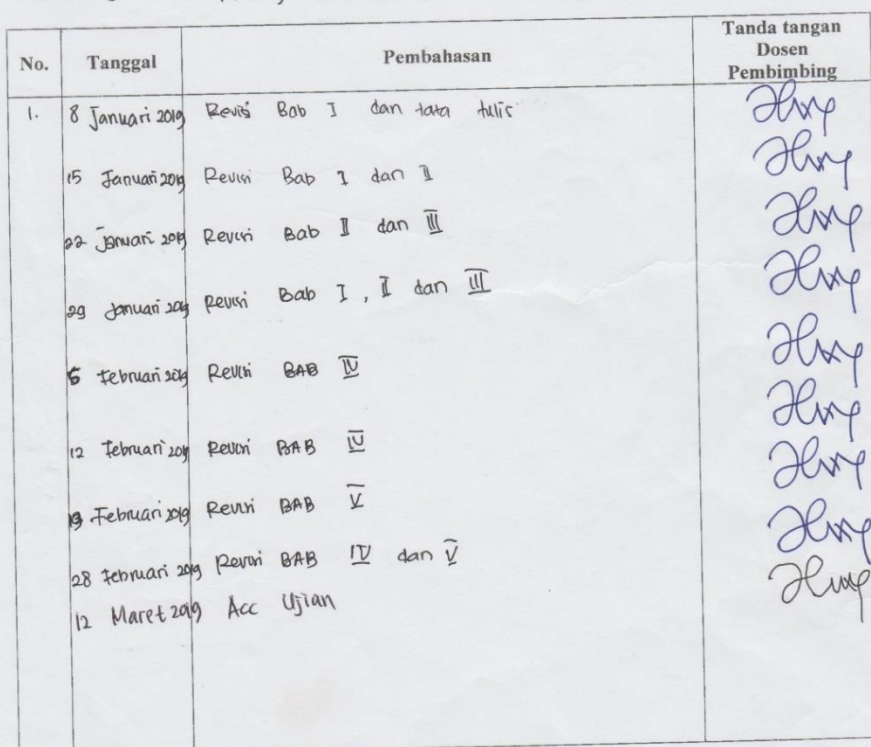 No. Tanggal Pembahasan Tanda tangan
Dosen
Pembimbing
1. 8 Januari 2019 Revisi Bab I dan tata tulis
15 Januari 2019 Revisi Bab I dan II
22 Januari 2019 Revisi Bab II dan III
29 Januari 2019 Revisi Bab I, II dan III
5 Februari 2019 Revisi BAB IV
12 Februari 2019 Revisi BAB IV
19 Februari 2019 Revisi BAB V
28 Februari 2019 Revisi BAB IV dan V
12 Maret 2019 Acc Ujian